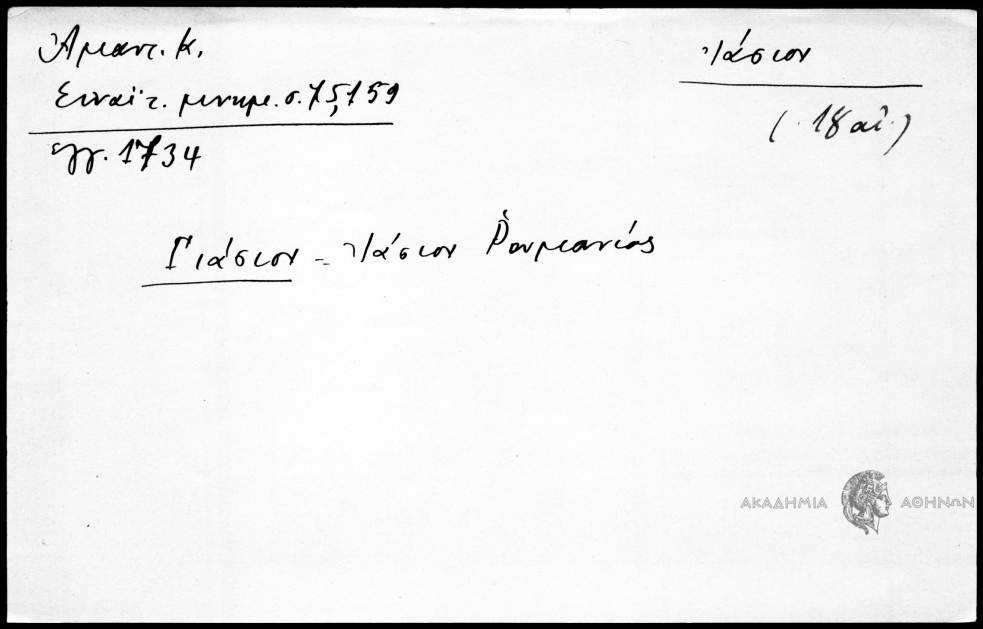 Ἀμαντ. Κ.
Σιναϊτ. μνημ. σ. 75,159
ἔγγ. 1734
Ἰάσιον
(18 αἰ.)
Γιάσιον = Ἰάσιον Ῥουμανίας
ΑΚΑΔΗΜΙΑ ΑΘΗΝΩΝ